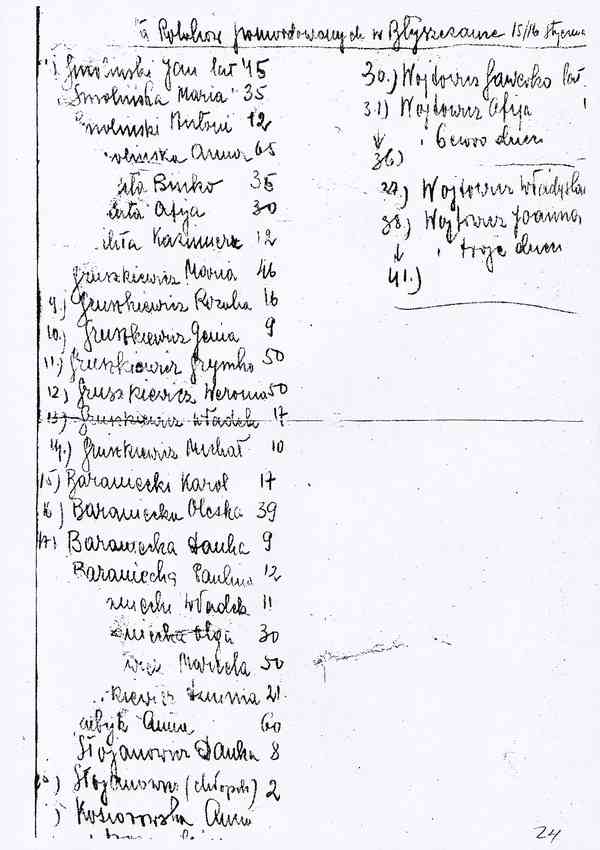 Polaków pomordowanych w Błyszczance 15/16 stycznia
1) Smoliński Jan lat 45
Smolińska Maria 35
Smoliński Antoni 12
Anna 65
Binko 35
Ofja 30
Kazimierz 12
Gruszkiewicz Maria 46
9.) Gruszkiewicz Rozalia 16
10.) Gruszkiewicz Genia 9
11) Gruszkiewicz Grymko 50
12) Gruszkiewicz Weronia 50
13) Gruszkiewicz Władek 17
14.) Gruszkiewicz Michał 10
15) Baraniecki Karol 17
16) Baraniecka Oleska 39
17) Baraniecka Danka 9
Baraniecka Paulina 12
Władek 11
Olga 30
Mariela 50
21
Anna 60
Stojanowicz Danka 8
) Stojanowicz (chłopak) 2
) Kosiorowska Anna
30.) Wojtowicz Gawełko lat
31) Wojtowicz Ofja
↓ " 6cioro dzieci
36)
37) Wojtowicz Władysław
38) Wojtowicz Joanna
↓ " troje dzieci
41.)
24